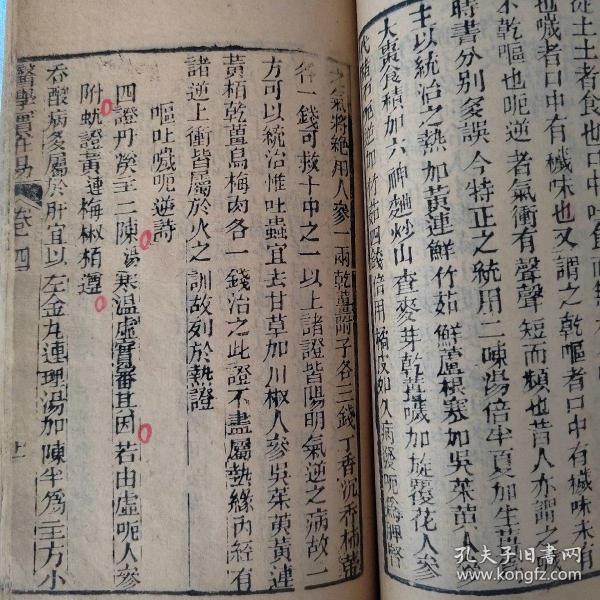 從土土者食也口中
也噦者口中有穢味也又謂之乾嘔者口中有穢味未有
不乾嘔也呃逆者氣衝有聲聲短而頻也昔人亦謂之
時書分別多誤今特正之統用二陳湯倍半夏加生薑
主以統治之熱加黃連鮮竹茹鮮蘆根寒加吳茱萸人參
大棗食積加六神麯炒山查麥芽乾薑噦加旋覆花人參
代赭石呃逆加竹茹四錢倍用橘皮如久病發呃
之氣將絕用人參一兩乾薑附子各三錢丁香沉香柿蒂
各一錢可救十中之一以上諸證皆陽明氣逆之病故二
方可以統治惟吐蟲宜去甘草加川椒人參吳茱萸黃連
黃栢乾薑烏梅肉各一錢治之此證不盡屬熱緣內經有
諸逆上衝皆屬於火之訓故列於熱證
嘔吐噦呃逆詩
四證丹溪主二陳湯寒溫虛實審其因若由虛呃人參
附蚘證黃連梅椒栢遵
吞酸病多屬於肝宜以左金丸連理湯加陳半為主方小
醫學實在易 卷四
孔夫子旧书网
www.kongfz.com